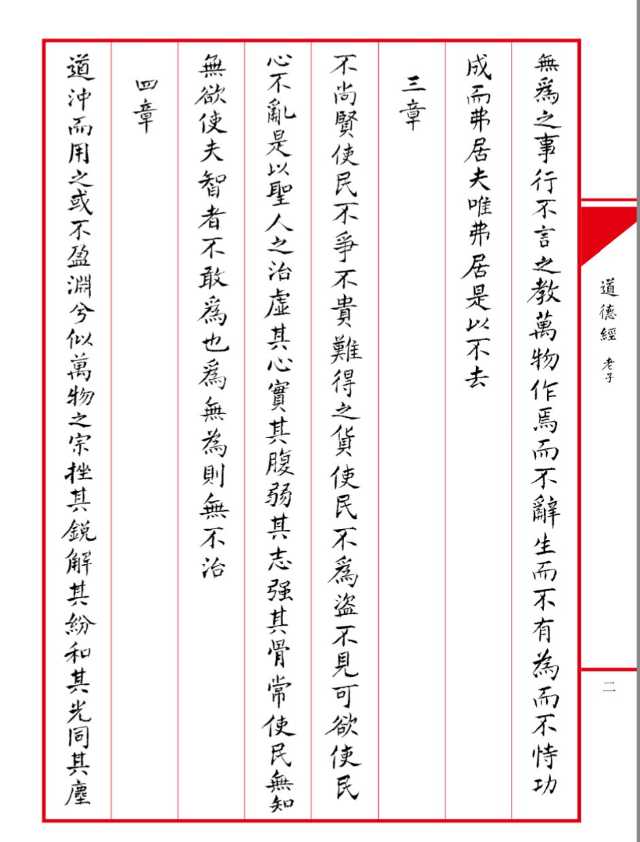 無爲之事行不言之教萬物作焉而不辭生而不有為而不恃功
成而弗居夫唯弗居是以不去
三章
不尚賢使民不爭不貴難得之貨使民不爲盜不見可欲使民
心不亂是以聖人之治虛其心實其腹弱其志强其骨常使民無知
無欲使夫智者不敢爲也爲無為則無不治
四章
道沖而用之或不盈淵兮似萬物之宗挫其鋭解其紛和其光同其塵
道德經 老子
二